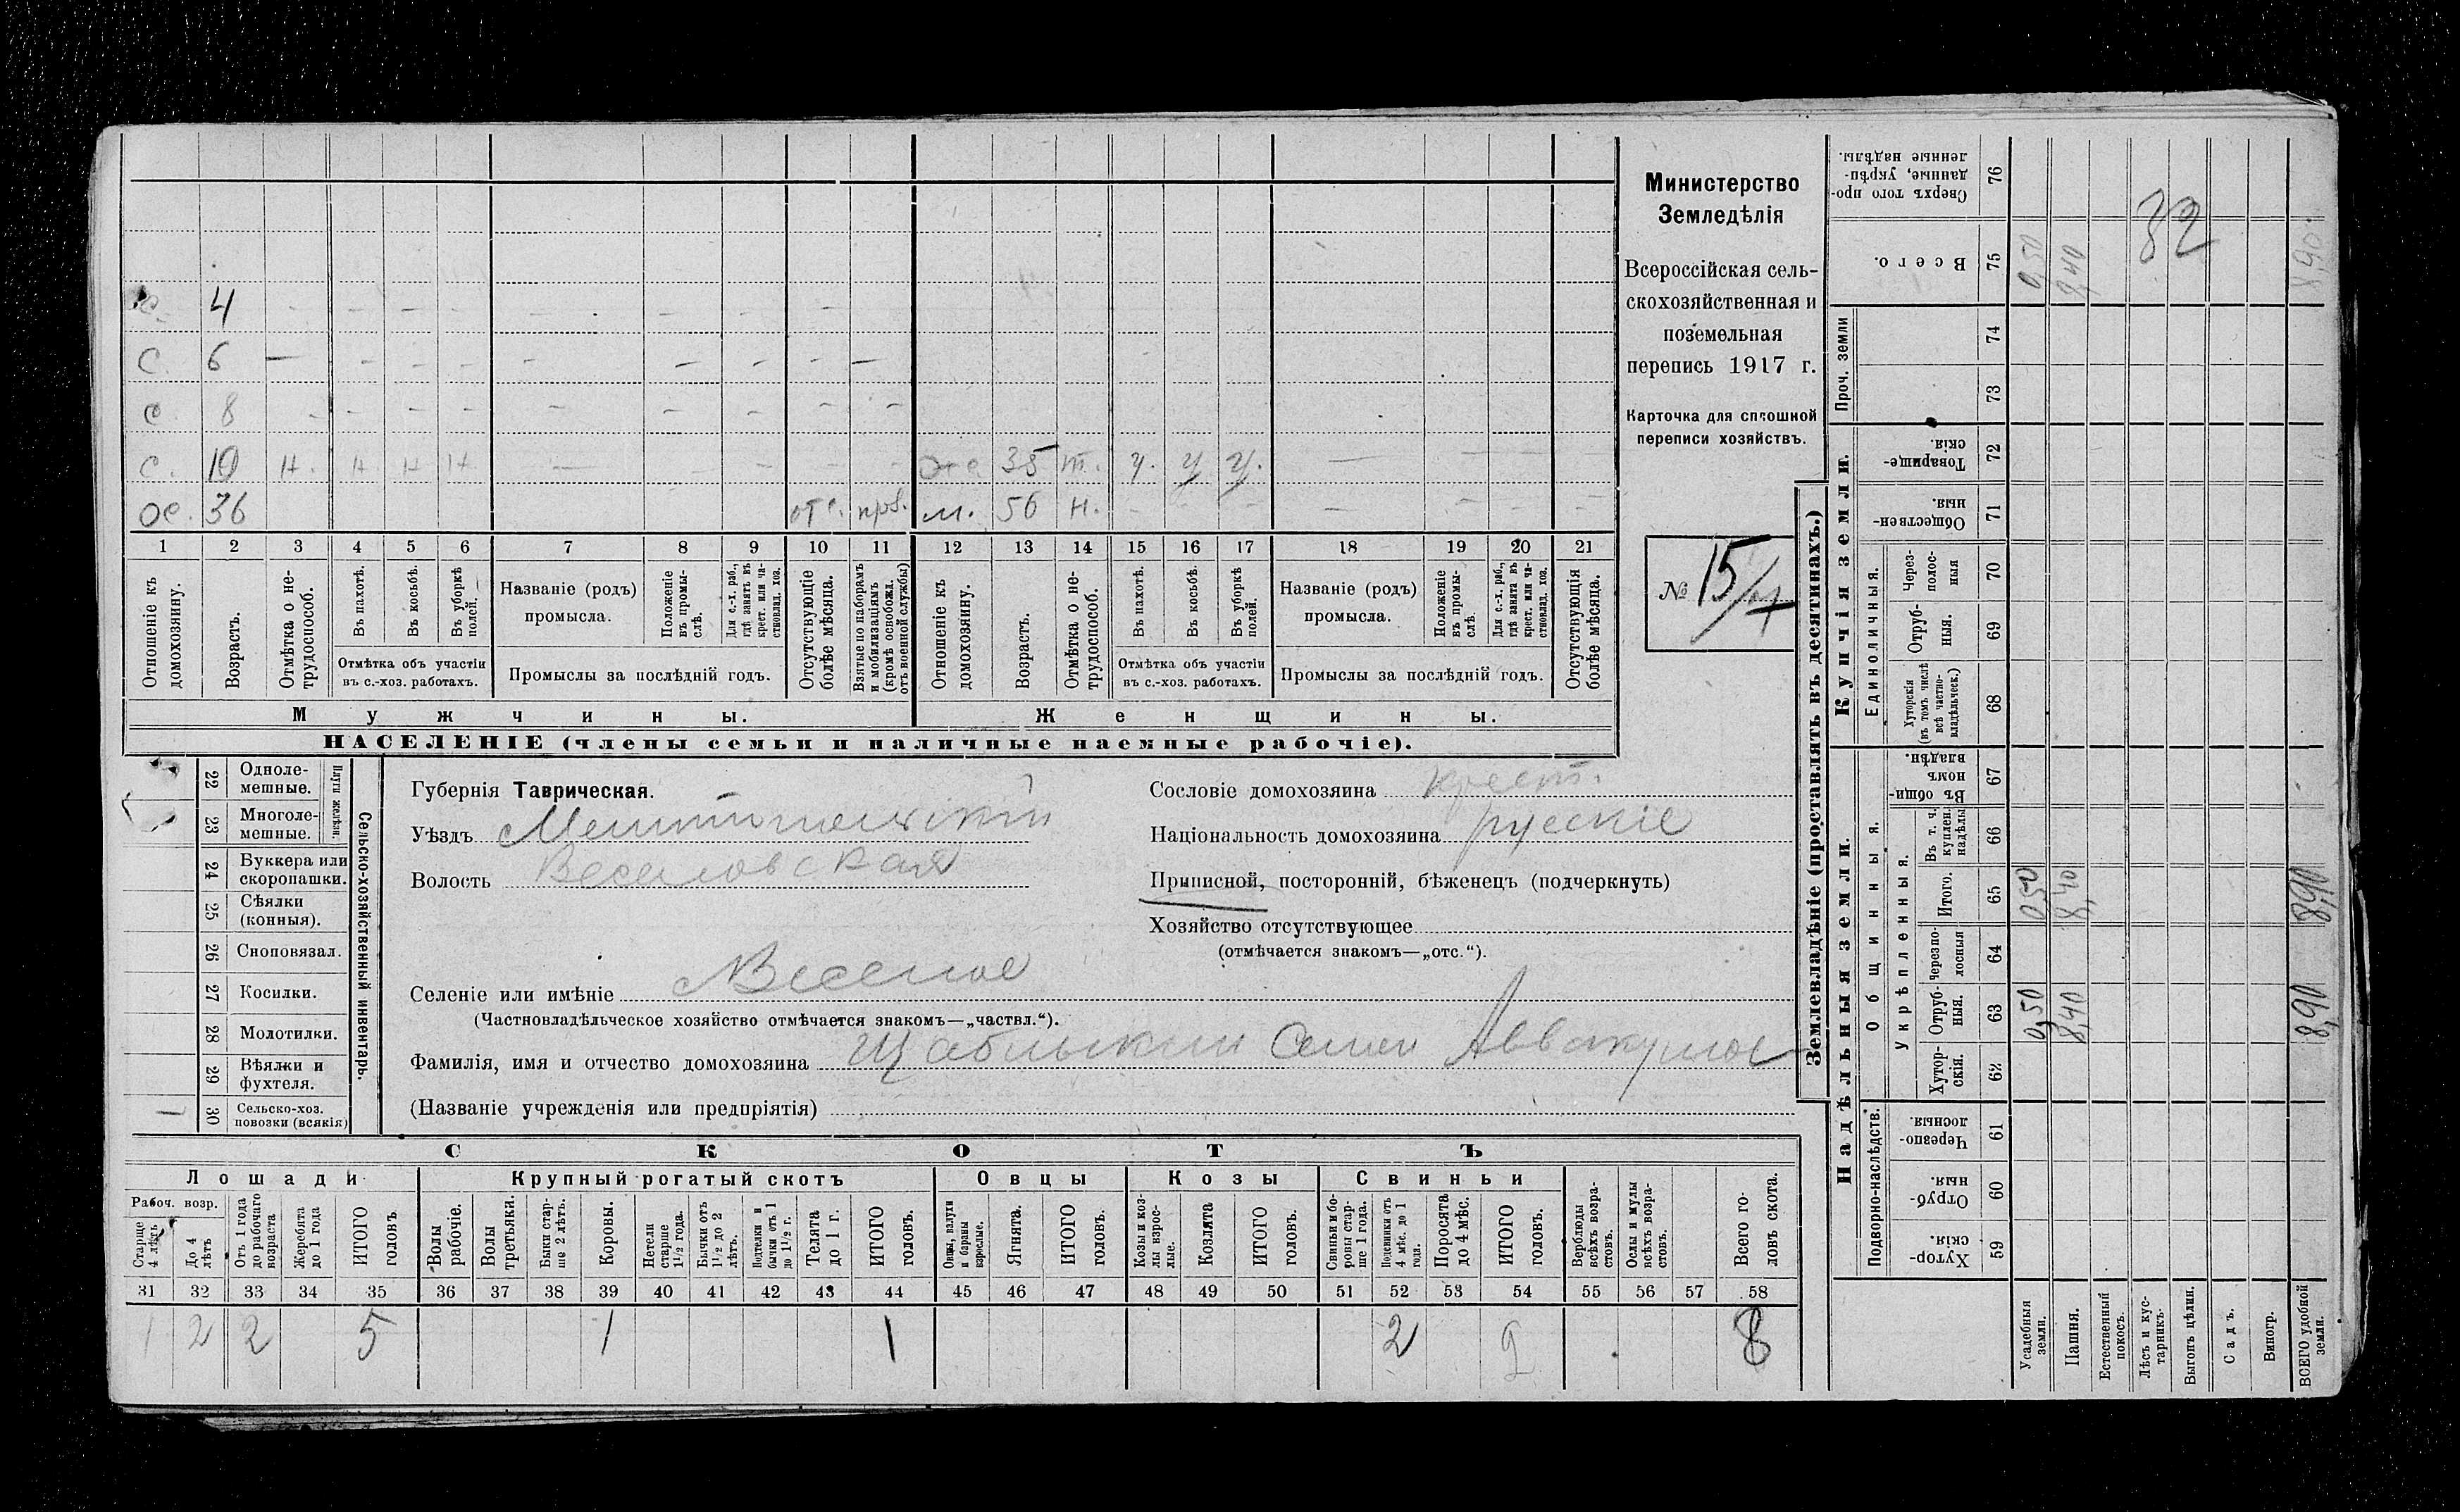 Министерство
Земледѣлія
Всероссійская сель-
скохозяйственная и
поземельная
перепись 1917 г.
Карточка для сплошной
переписи хозяйствъ.
№ 15/
4 – – – – – – – –
с. 6 – – – – – – – – –
с 8 – – – – – – – – –
с. 10 н. н н н – – – – – 35 т. у. у у. – – – –
36 отс. м. 56 н. – – – – – – –
1 2 3 4 5 6 7 8 9 10 11 12 13 14 15 16 17 18 19 20 21
Отношеніе къ домохозяину.
Возрастъ.
Отмѣтка о не-трудоспособ.
Въ пахотѣ.
Въ косьбѣ.
Въ уборкѣ полей.
Отмѣтка объ участіи
въ с.-хоз. работахъ.
Названіе (родъ)
промысла.
Положеніе въ промы-слѣ.
Для с.-х. раб., гдѣ занятъ въ крест. или ча-стновлад. хоз.
Промыслы за послѣдній годъ.
Отсутствующіе болѣе мѣсяца.
Взятые по наборамъ и мобилизаціямъ (кромѣ освобожд. отъ военной службы)
Отношеніе къ домохозяину.
Возрастъ.
Отмѣтка о не-трудоспособ.
Въ пахотѣ.
Въ косьбѣ.
Въ уборкѣ полей.
Отмѣтка объ участіи
въ с.-хоз. работахъ.
Названіе (родъ)
промысла.
Положеніе въ промы-слѣ.
Для с.-х. раб., гдѣ занята въ крест. или ча-стновлад. хоз.
Промыслы за послѣдній годъ.
Отсутствующія болѣе мѣсяца.
Мужчины.
Женщины.
НАСЕЛЕНІЕ (члены семьи и наличные наемные рабочіе).
22 Одноле-мешные.
23 Многоле-мешные.
Плуги желѣзн.
24 Буккера или скоропашки.
25 Сѣялки (конныя).
26 Сноповязал.
27 Косилки.
28 Молотилки.
29 Вѣялки и фухтеля.
30 Сельско-хоз. повозки (всякія)
Сельско-хозяйственный инвентарь.
Губернія Таврическая.
Уѣздъ Мелитопольскій
Волость Веселовская
Селеніе или имѣніе Веселое
(Частновладѣльческое хозяйство отмѣчается знакомъ—„частвл.“).
Фамилія, имя и отчество домохозяина Семен Аввакумов
(Названіе учрежденія или предпріятія)
Сословіе домохозяина крест.
Національность домохозяина русскіе
Приписной, посторонній, бѣженецъ (подчеркнуть)
Хозяйство отсутствующее
(отмѣчается знакомъ—„отс.“).
СКОТЪ
Лошади
Крупный рогатый скотъ
Овцы
Козы
Свиньи
Рабоч. возр.
Старше 4 лѣтъ
До 4 лѣтъ
Отъ 1 года до рабочаго возраста
Жеребята до 1 года
ИТОГО головъ
Волы рабочіе.
Волы третьяки.
Быки стар-ше 2 лѣтъ.
Коровы.
Нетели старше 1½ года.
Бычки отъ 1½ до 2 лѣтъ.
Подтелки и бычки отъ 1 до 1½ г.
Телята до 1 г.
ИТОГО головъ.
Овцы, валухи и бараны взрослые.
Ягнята.
ИТОГО головъ.
Козы и коз-лы взрос-лые.
Козлята
ИТОГО головъ.
Свиньи и бо-ровы стар-ше 1 года.
Подсвинки отъ 4 мѣс. до 1 года.
Поросята до 4 мѣс.
ИТОГО головъ.
Верблюды всѣхъ возра-стовъ.
Ослы и мулы всѣхъ возра-стовъ.
Всего го-ловъ скота.
31 32 33 34 35 36 37 38 39 40 41 42 43 44 45 46 47 48 49 50 51 52 53 54 55 56 57 58
1 2 2 5 1 1 2 2 8
Землевладѣніе (проставлять въ десятинахъ.)
Надѣльныя земли.
Купчія земли.
Проч. земли
Подворно-наслѣдств.
Общинныя.
Укрѣпленныя.
Единоличныя.
Хутор-скія. 59
Отруб-ныя. 60
Черезпо-лосныя. 61
Хутор-скія. 62
Отруб-ныя. 63
Черезпо-лосныя 64
Итого. 65
Въ т. ч. куплен. надѣлы 66
Въ общин-номъ владѣн. 67
Хуторскія (въ томъ числѣ всѣ частно-владѣльческ.) 68
Отруб-ныя. 69
Через-полос-ныя 70
Обществен-ныя. 71
Товарище-скія. 72
73
74
Всего. 75
Сверхъ того про-данные, укрѣп-ленные надѣлы. 76
Усадебныя земли. 0,50 0,50 0,50
Пашня. 8,40 8,40 8,40
Естественный покосъ.
Лѣсъ и кус-тарникъ.
Выгонъ цѣлин.
Садъ.
Виногр.
ВСЕГО удобной земли. 8,90 8,90 8,90
32